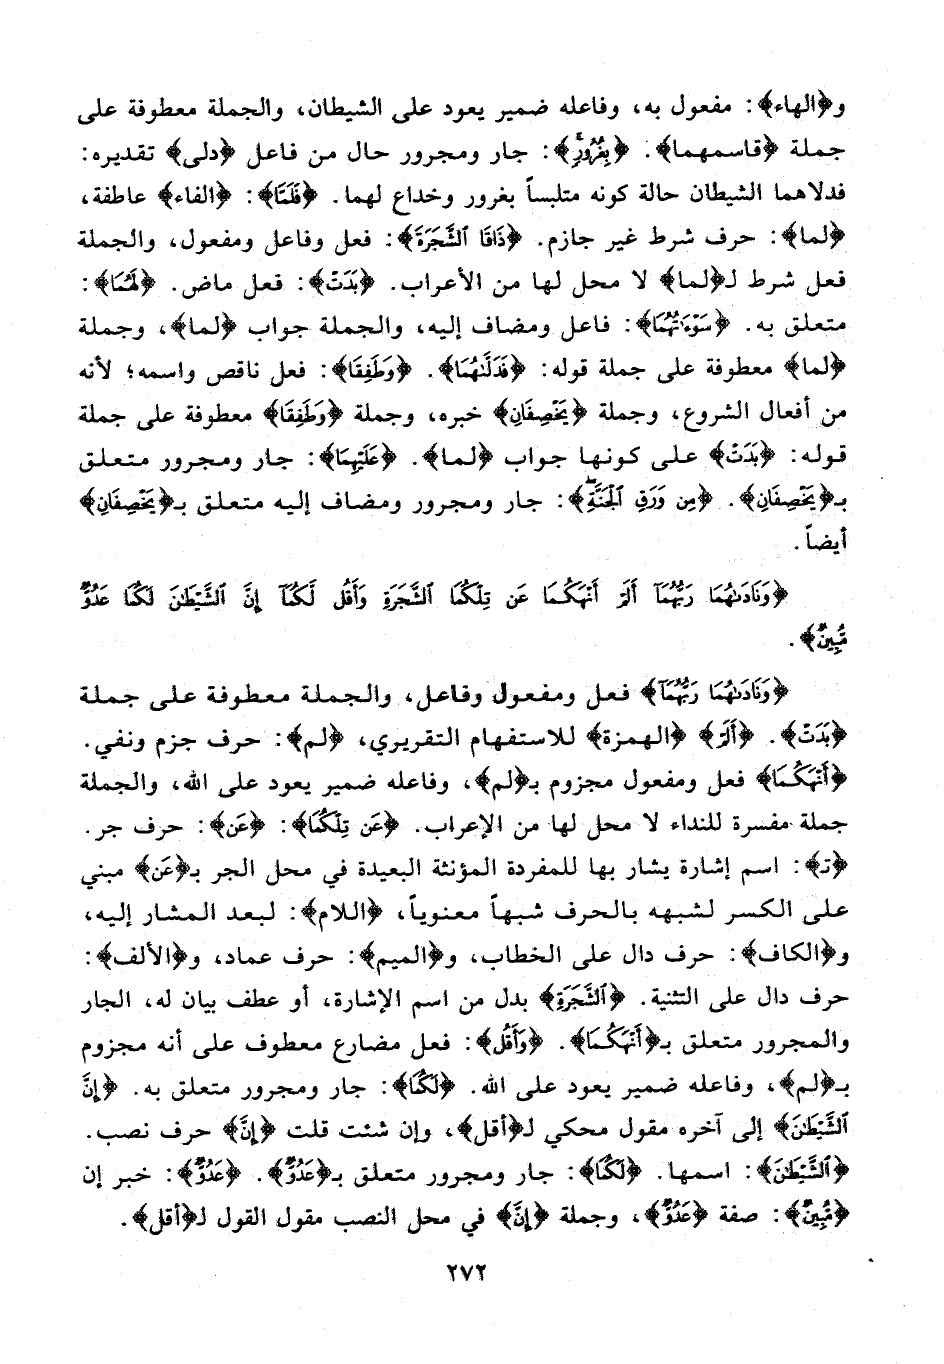 و﴿الهاء﴾: مفعول به، وفاعله ضمير يعود على الشيطان، والجملة معطوفة على
جملة ﴿قاسمهما﴾. ﴿بِغُرُورٍ﴾: جار ومجرور حال من فاعل ﴿دلى﴾ تقديره:
فدلاهما الشيطان حالة كونه متلبساً بغرور وخداع لهما. ﴿فَلَمَّا﴾: ﴿الفاء﴾ عاطفة،
﴿لما﴾: حرف شرط غير جازم. ﴿ذَاقَا ٱلشَّجَرَةَ﴾: فعل وفاعل ومفعول، والجملة
فعل شرط لـ﴿لما﴾ لا محل لها من الأعراب. ﴿بَدَتْ﴾: فعل ماض. ﴿لَهُمَا﴾:
متعلق به. ﴿سَوْءَٰتُهُمَا﴾: فاعل ومضاف إليه، والجملة جواب ﴿لما﴾، وجملة
﴿لما﴾ معطوفة على جملة قوله: ﴿فَدَلَّىٰهُمَا﴾. ﴿وَطَفِقَا﴾: فعل ناقص واسمه؛ لأنه
من أفعال الشروع، وجملة ﴿يَخْصِفَانِ﴾ خبره، وجملة ﴿وَطَفِقَا﴾ معطوفة على جملة
قوله: ﴿بَدَتْ﴾ على كونها جواب ﴿لما﴾. ﴿عَلَيْهِمَا﴾: جار ومجرور متعلق
بـ﴿يَخْصِفَانِ﴾. ﴿مِن وَرَقِ ٱلْجَنَّةِ ۖ﴾: جار ومجرور ومضاف إليه متعلق بـ﴿يَخْصِفَانِ﴾
أيضاً.
﴿وَنَادَىٰهُمَا رَبُّهُمَآ أَلَمْ أَنْهَكُمَا عَن تِلْكُمَا ٱلشَّجَرَةِ وَأَقُل لَّكُمَآ إِنَّ ٱلشَّيْطَٰنَ لَكُمَا عَدُوٌّ
مُّبِينٌ﴾.
﴿وَنَادَىٰهُمَا رَبُّهُمَآ﴾ فعل ومفعول وفاعل، والجملة معطوفة على جملة
﴿بَدَتْ﴾. ﴿أَلَمْ﴾ ﴿الهمزة﴾ للاستفهام التقريري، ﴿لم﴾: حرف جزم ونفي.
﴿أَنْهَكُمَا﴾ فعل ومفعول مجزوم بـ﴿لم﴾، وفاعله ضمير يعود على الله، والجملة
جملة مفسرة للنداء لا محل لها من الإعراب. ﴿عَن تِلْكُمَا﴾: ﴿عَن﴾: حرف جر.
﴿تـ﴾: اسم إشارة يشار بها للمفردة المؤنثة البعيدة في محل الجر بـ﴿عَن﴾ مبني
على الكسر لشبهه بالحرف شبهاً معنوياً، ﴿اللام﴾: لبعد المشار إليه،
و﴿الكاف﴾: حرف دال على الخطاب، و﴿الميم﴾: حرف عماد، و﴿الألف﴾:
حرف دال على التثنية. ﴿ٱلشَّجَرَةِ﴾ بدل من اسم الإشارة، أو عطف بيان له، الجار
والمجرور متعلق بـ﴿أَنْهَكُمَا﴾. ﴿وَأَقُل﴾: فعل مضارع معطوف على أنه مجزوم
بـ﴿لم﴾، وفاعله ضمير يعود على الله. ﴿لَكُمَا﴾: جار ومجرور متعلق به. ﴿إِنَّ
ٱلشَّيْطَٰنَ﴾ إلى آخره مقول محكي لـ﴿أقل﴾، وإن شئت قلت ﴿إِنَّ﴾ حرف نصب.
﴿ٱلشَّيْطَٰنَ﴾: اسمها. ﴿لَكُمَا﴾: جار ومجرور متعلق بـ﴿عَدُوٌّ﴾. ﴿عَدُوٌّ﴾: خبر إن
﴿مُّبِينٌ﴾: صفة ﴿عَدُوٌّ﴾، وجملة ﴿إِنَّ﴾ في محل النصب مقول القول لـ﴿أقل﴾.
٢٧٢